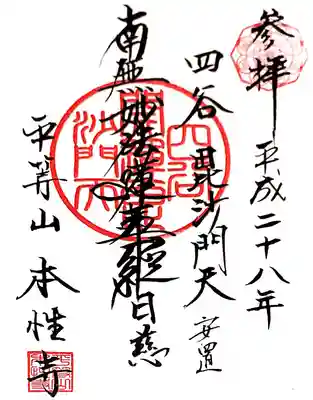 参拝
平成二十八年
四谷 毘沙門天 安置
南無妙法蓮華経 日慈
平等山 本性寺